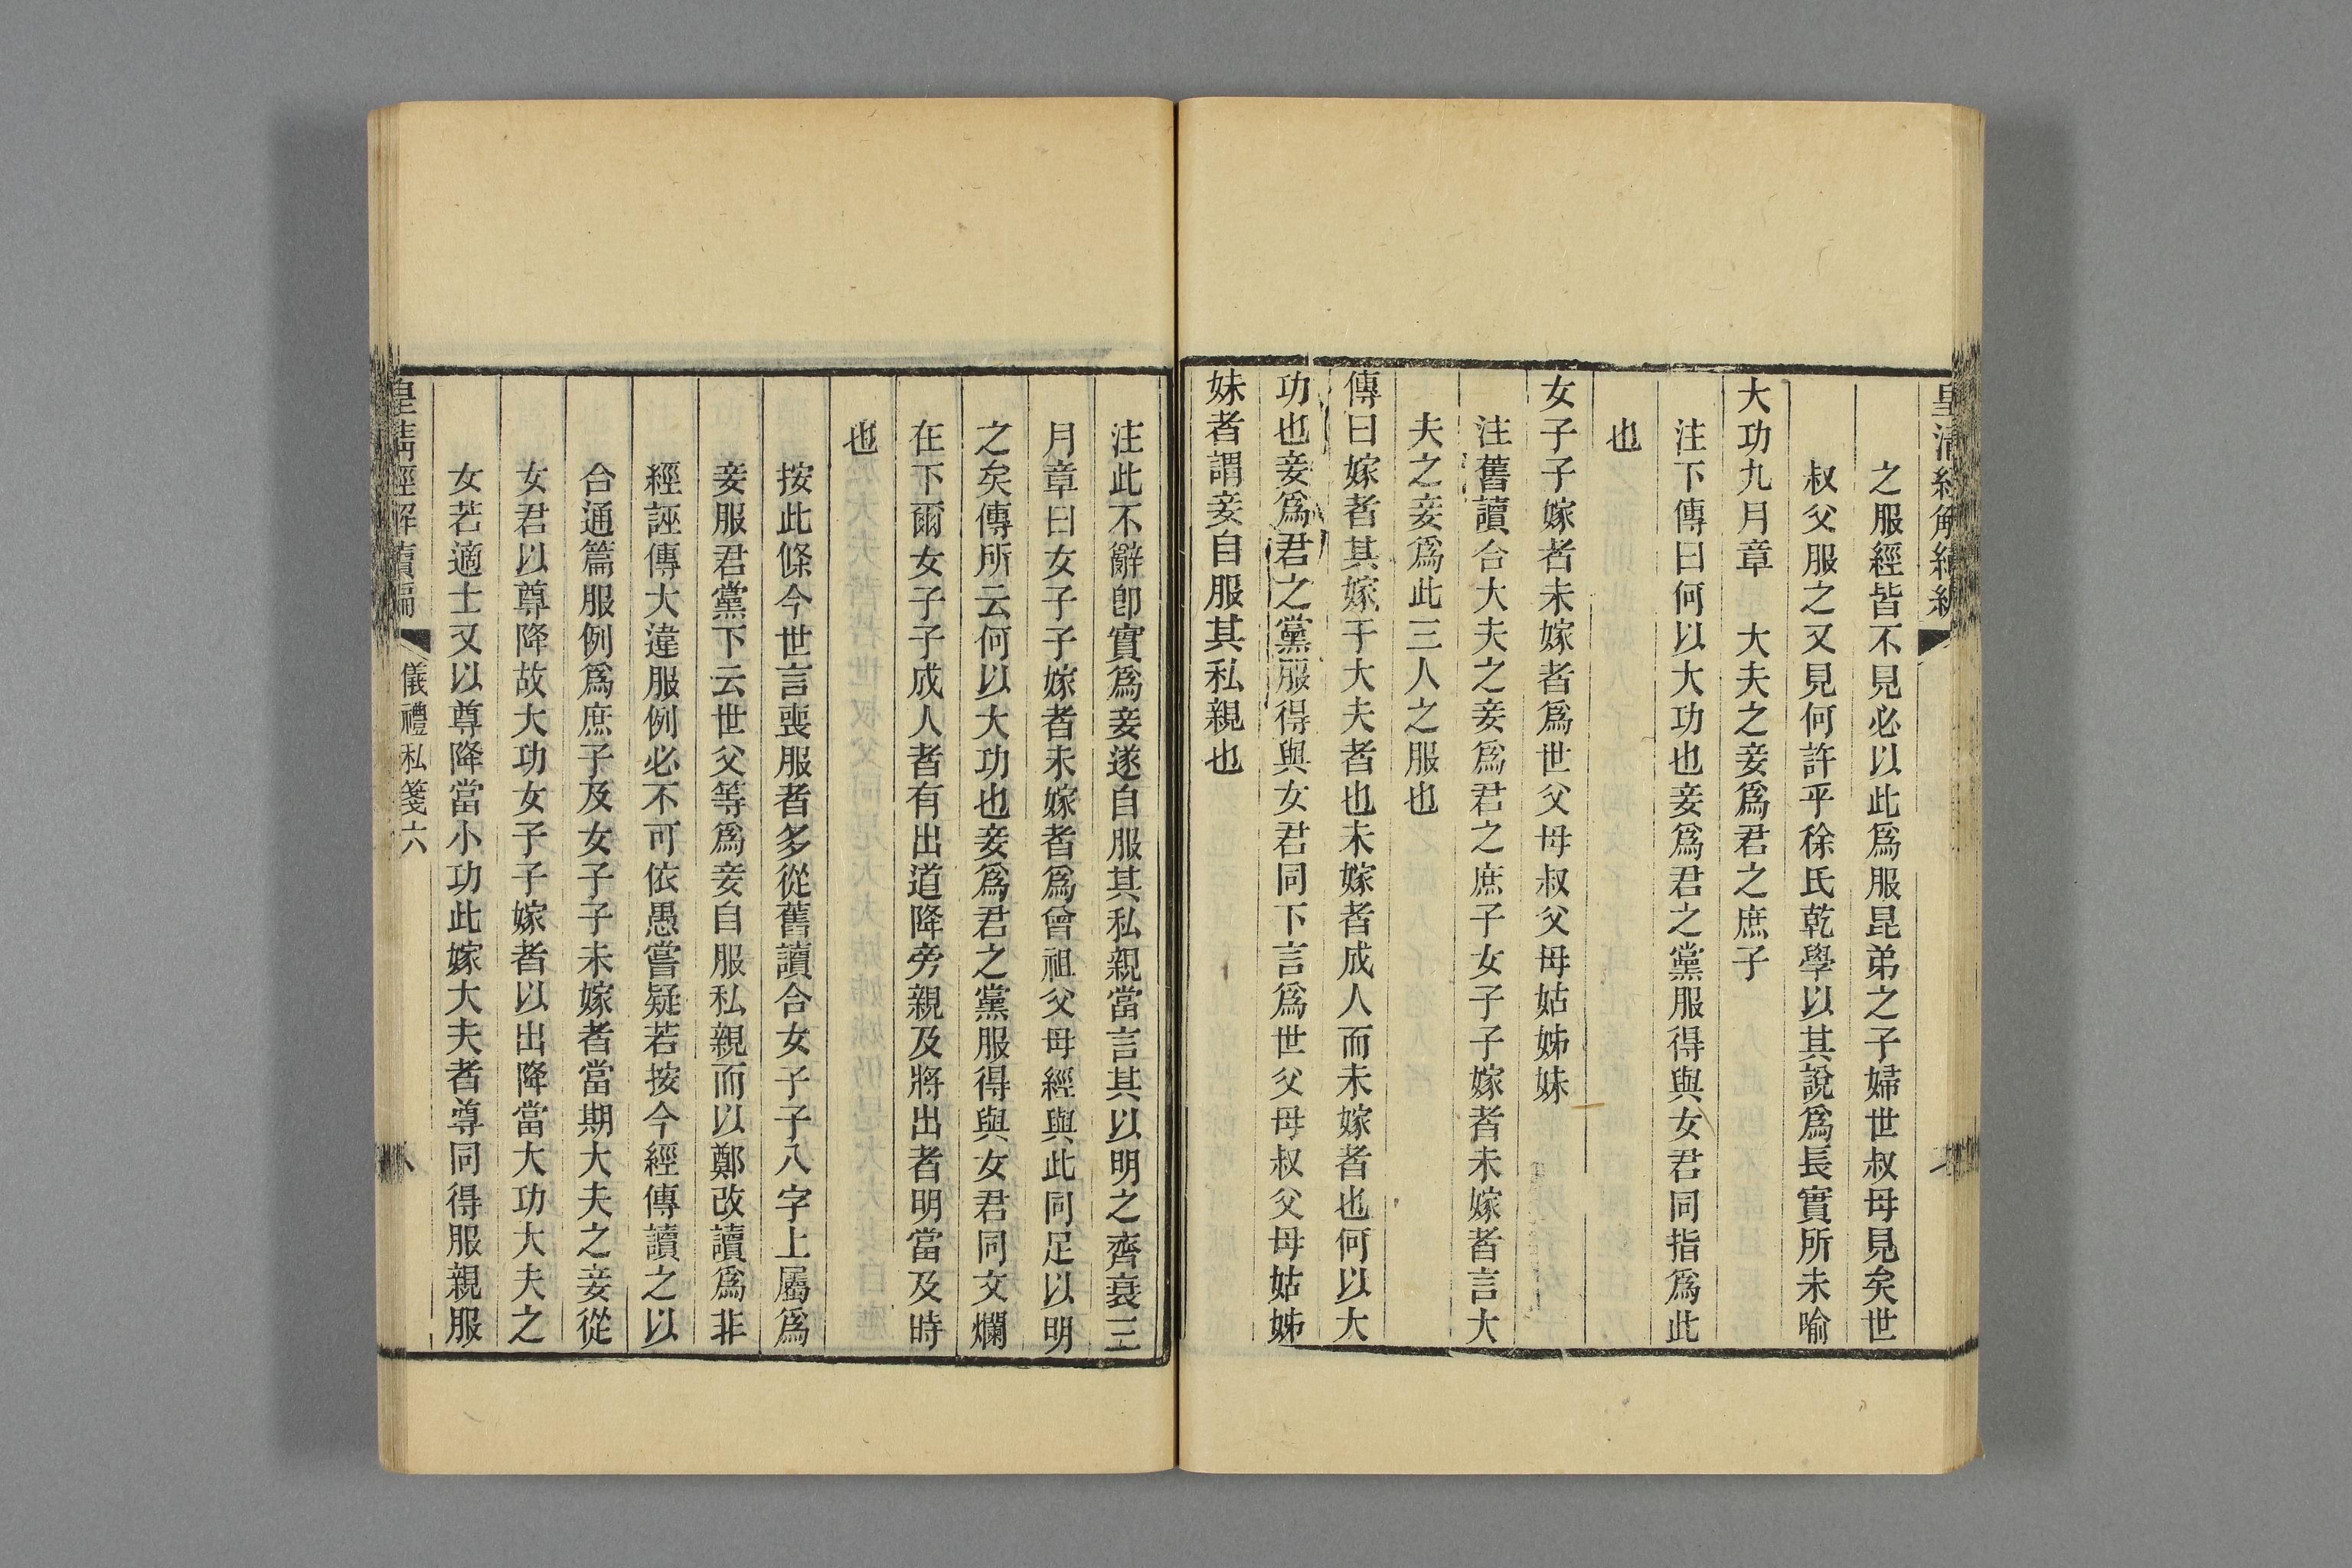 皇清經解續編
之服經皆不見必以此爲服昆弟之子婦世叔母見矣世
叔父服之又見何許乎徐氏乾學以其說爲長實所未喻
大功九月章　大夫之妾爲君之庶子
注下傳曰何以大功也妾爲君之黨服得與女君同指爲此
也
女子子嫁者未嫁者爲世父母叔父母姑姊妹
注舊讀合大夫之妾爲君之庶子女子子嫁者未嫁者言大
夫之妾爲此三人之服也
傳曰嫁者其嫁于大夫者也未嫁者成人而未嫁者也何以大
功也妾爲君之黨服得與女君同下言爲世父母叔父母姑姊
妹者謂妾自服其私親也
注此不辭卽實爲妾遂自服其私親當言其以明之齊衰三
月章曰女子子嫁者未嫁者爲曾祖父母經與此同足以明
之矣傳所云何以大功也妾爲君之黨服得與女君同文爛
在下爾女子子成人者有出道降旁親及將出者明當及時
也
按此條今世言喪服者多從舊讀合女子子八字上屬爲
妾服君黨下云世父等爲妾自服私親而以鄭改讀爲非
經誣傳大違服例必不可依愚嘗疑若按今經傳讀之以
合通篇服例爲庶子及女子子未嫁者當期大夫之妾從
女君以尊降故大功女子子嫁者以出降當大功大夫之
女若適士又以尊降當小功此嫁大夫者尊同得服親服
皇清經解續編
儀禮私箋六
八